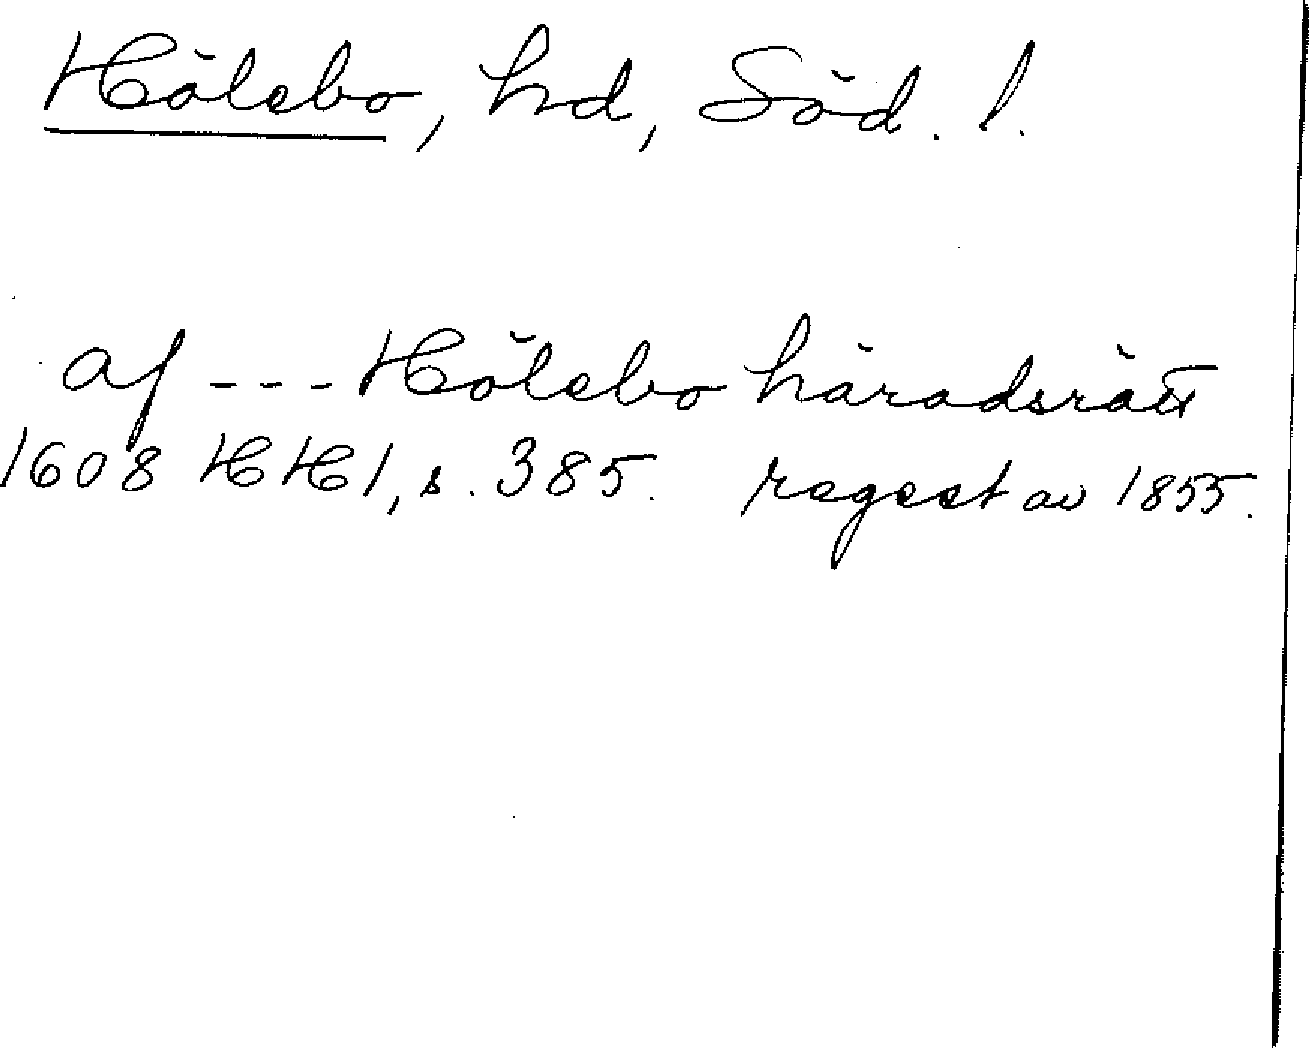 Hölebo, hd, Söd. l.
af --- Hölebo häradsrätt
1608 HH 1, s. 385. regest av 1855.